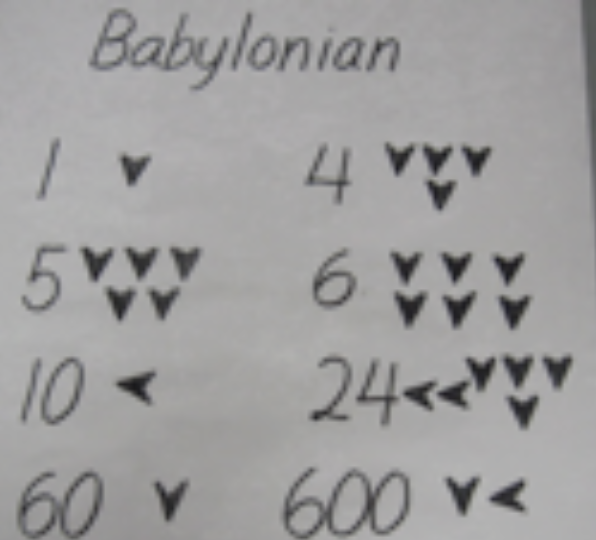 Babylonian
1 𒁹 4 𒐉
5 𒐊 6 𒐋
10 𒌋 24 𒌋𒌋𒐉
60 𒁹 600 𒁹𒌋